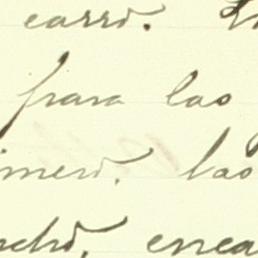 carro.
para las
imero. las
ncho, enca